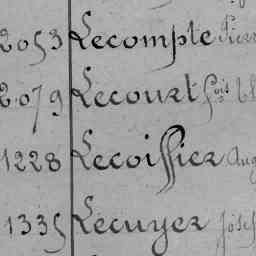 2053 Lecompte Pierr
2079 Lecourt fois
1228 Lecoiffier Aug
1335 Lecuyer Josep